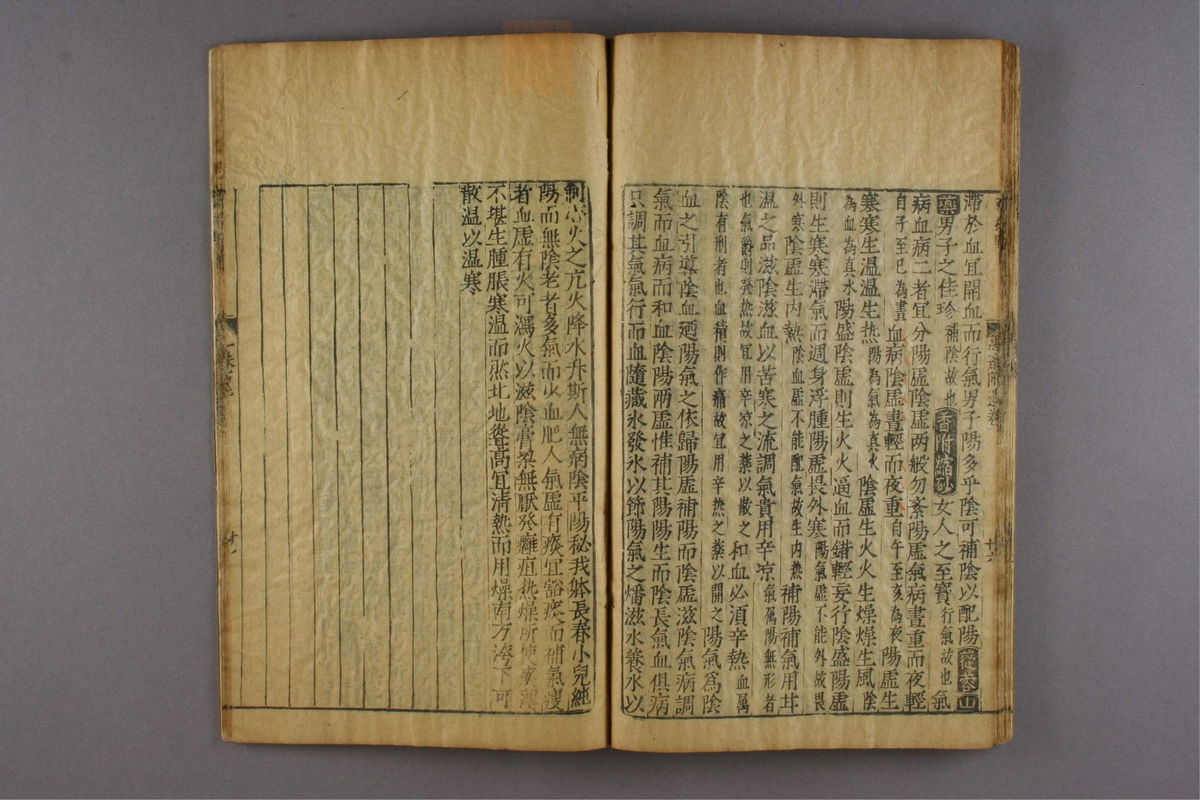 滯於血宜開血而行氣男子陽多乎陰可補陰以配陽蓯蓉山
藥男子之佳珍補陰故也香附縮砂女人之至寶行氣故也氣
病血病二者宜分陽虛陰虛两般勿紊陽虛氣病晝重而夜輕
自子至巳為晝血病陰虛晝輕而夜重自午至亥為夜陽虛生
寒寒生温温生热陽為氣為真火陰虛生火火生燥燥生風陰
為血為真水陽盛陰虛則生火火逼血而錯輕妄行陰盛陽虛
則生寒寒滯氣而週身浮腫陽虛畏外寒陽氣虛不能外故畏
外寒陰虛生内熱陰血虛不能配氣故生内热補陽補氣用甘
温之品滋陰滋血以苦寒之流調氣貴用辛凉氣属陽無形者
也氣爵則発热故宜用辛凉之藥以散之和血必湏辛熱血属
陰有刑者也血積則作痛故宜用辛热之藥以開之陽氣為陰
血之引導陰血廼陽氣之依歸陽虛補陽而陰虛滋陰氣病調
氣而血病而和血陰陽两虛惟補其陽陽生而陰長氣血俱病
只調其氣氣行而血隨藏氷發氷以節陽氣之燔滋水養水以
十六
制心火之亢火降水升斯人無病陰平陽秘我躰長春小兒純
陽而無陰老者多氣而少血肥人氣虛有痰宜豁痰而補氣瘦
者血虛有火可瀉火以滋陰膏梁無厭発癰疽热燥所使
不堪生腫脹寒温而然北地從高宜清熱而用燥南方下可
散温以温寒